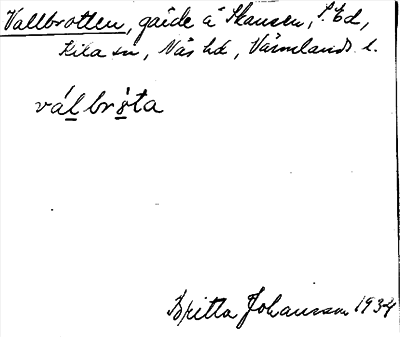 Vallbrotten, gärde å Skansen, S. Ed,
Kila sn, Näs hd, Värmlands l.
válbròta
Britta Johansson 1934